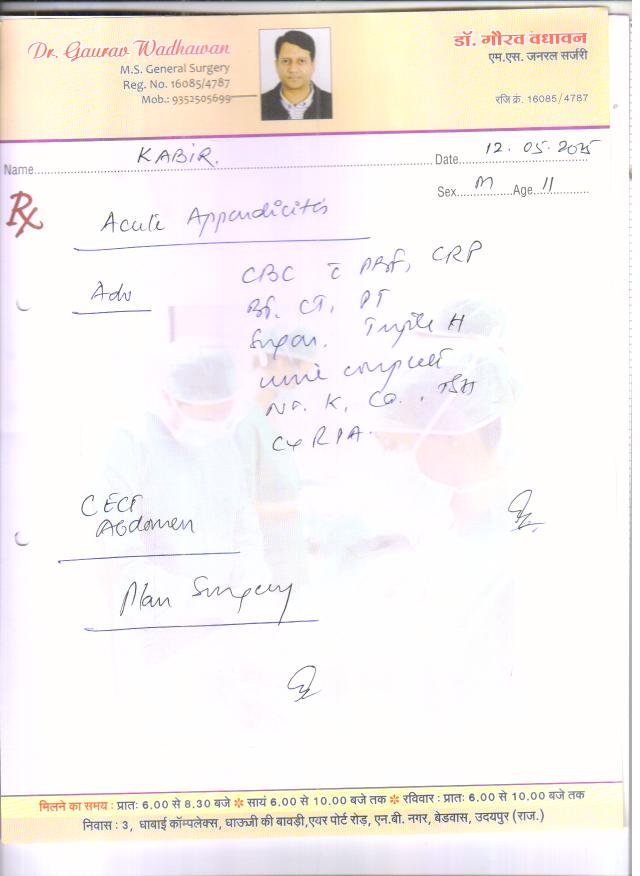 Dr. Gaurav Wadhawan
M.S. General Surgery
Reg. No. 16085/4787
Mob.: 9352505699
डॉ. गौरव वधावन
एम.एस. जनरल सर्जरी
रजि क्रं. 16085/4787
Name KABIR. Date 12.05.2025
Sex M Age 11
Rx
Acute Appendicitis
Adv
CBC c̄ PBF, CRP
BT. CT, PT
Sugar. Triple H
urine complete
Na. K, Ca., TSH
CxR PA.
CECT
Abdomen
Plan Surgery
मिलने का समय : प्रातः 6.00 से 8.30 बजे ✽ सायं 6.00 से 10.00 बजे तक ✽ रविवार : प्रातः 6.00 से 10.00 बजे तक
निवास : 3, धाबाई कॉम्पलेक्स, धाऊजी की बावड़ी,एयर पोर्ट रोड़, एन.बी. नगर, बेडवास, उदयपुर (राज.)